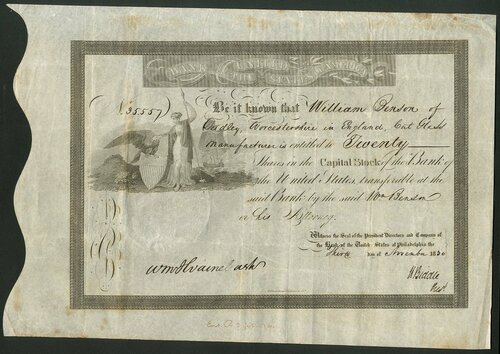 BANK UNITED STATES
No. 35557 Be it known that William Benson of
Dudley, Worcestershire in England, Cut Glass
Manufacturer is entitled to Twenty
Shares in the Capital Stock of the Bank of
the United States, transferable at the
said Bank by the said Wm Benson
or his Attorney.
Witness the Seal of the President Directors and Company of
the Bank of the United States at Philadelphia the
day of November 1830
N Biddle
Prest.